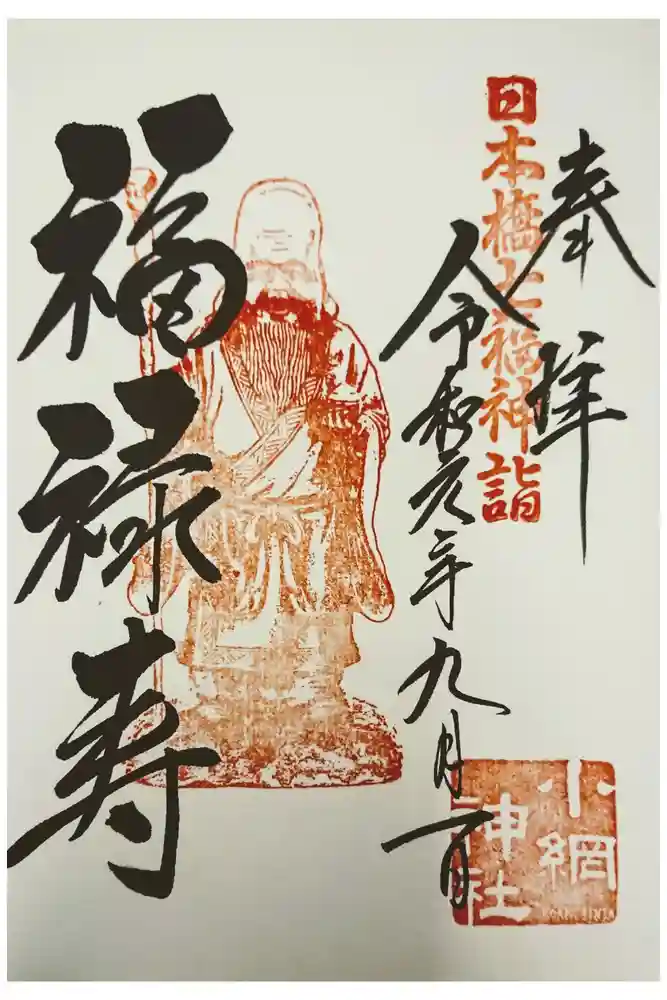 奉拝
日本橋七福神詣
令和元年九月一日
小網
神社
福禄寿